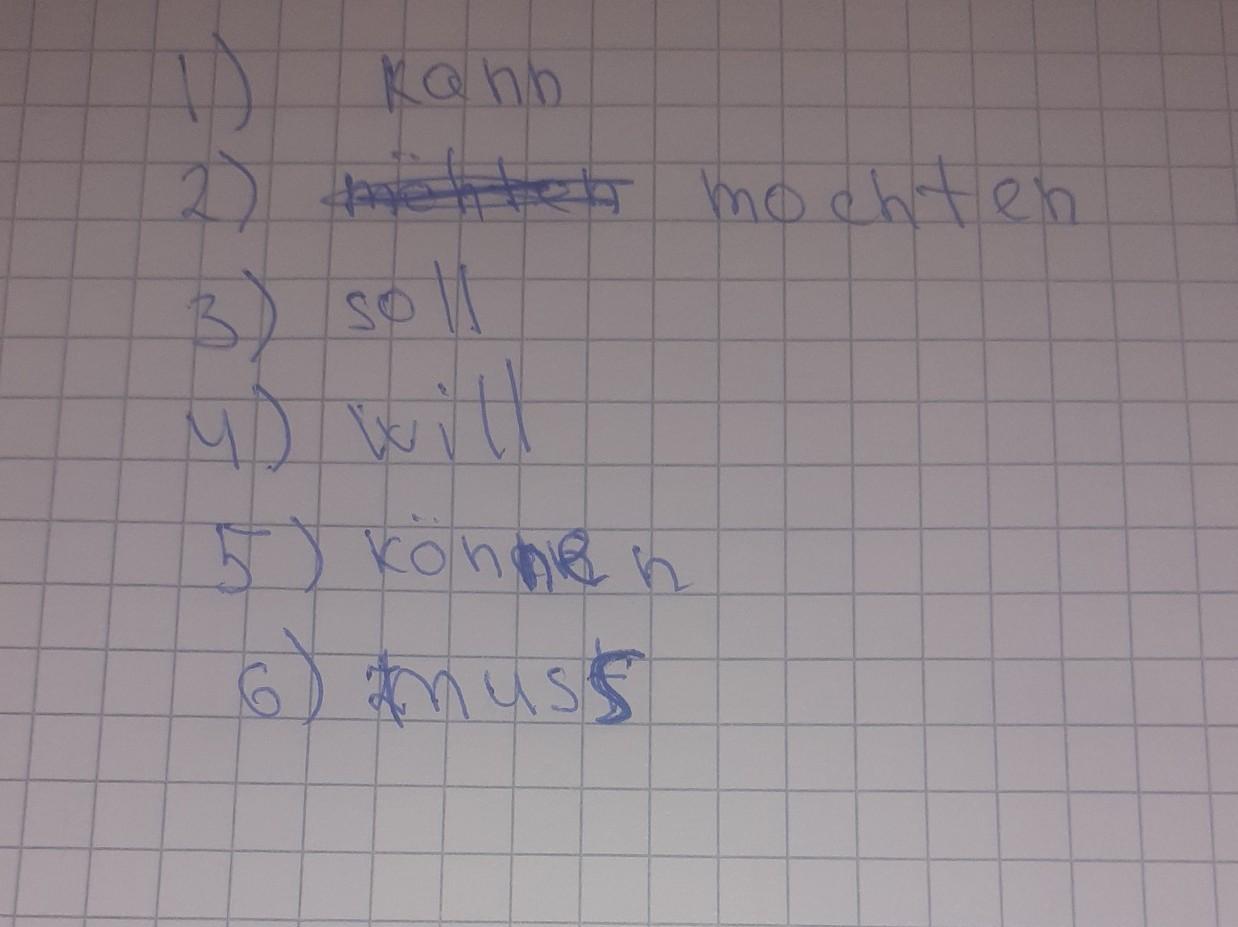 1) kann
2) möhten mochten
3) soll
4) will
5) können
6) muss